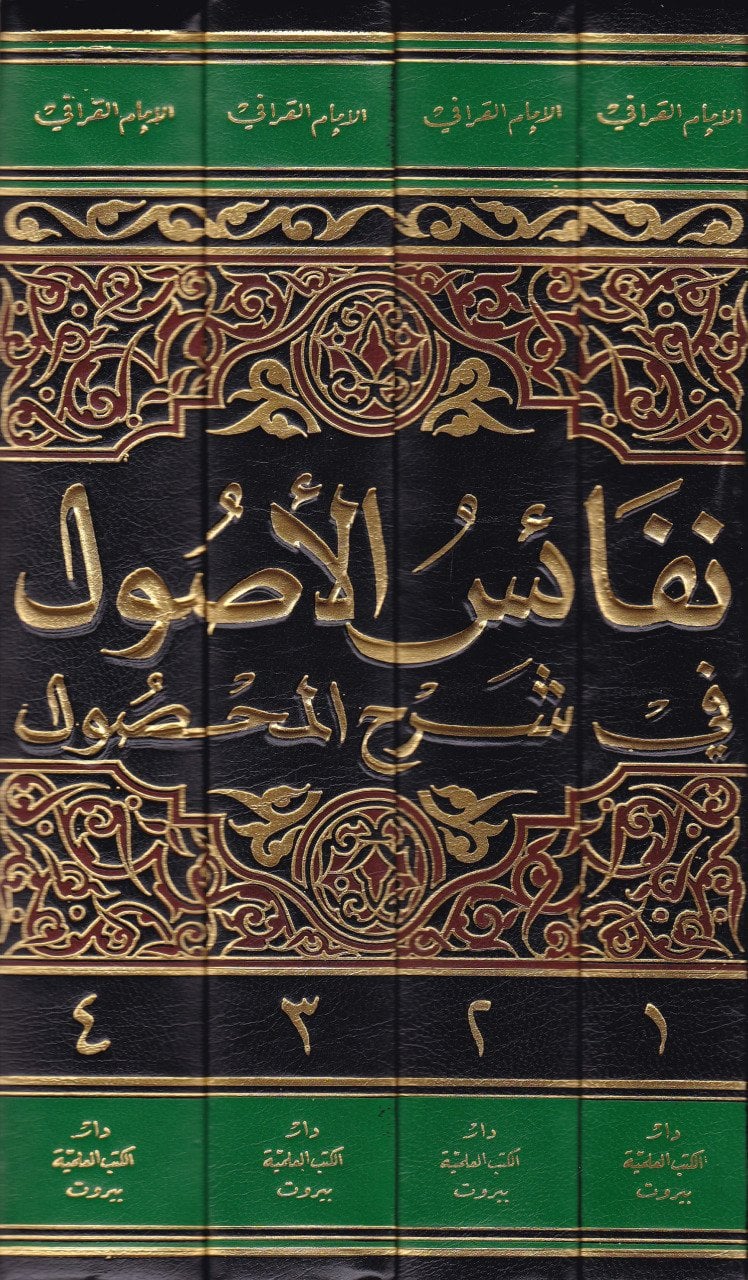 الإمام القرافي الإمام القرافي الإمام القرافي الإمام القرافي
نَفَائسُ الأصُول
فيْ شَرح المحْصُول
١ ٢ ٣ ٤
دار دار دار دار
الكتب العلمية الكتب العلمية الكتب العلمية الكتب العلمية
بيروت بيروت بيروت بيروت